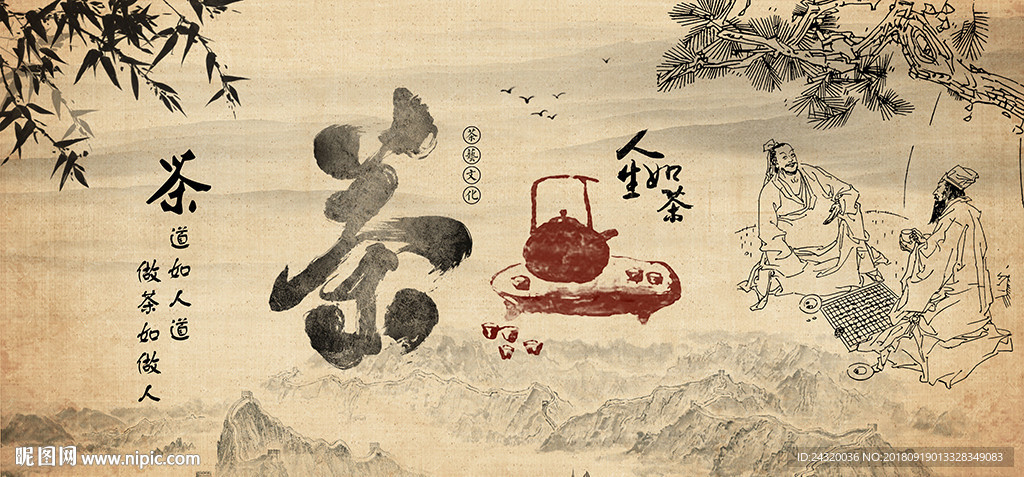 茶
道如人道
做茶如做人
茶
茶藝文化
人生
如茶
昵图网 www.nipic.com
ID:24320036 NO:20180919013328349083